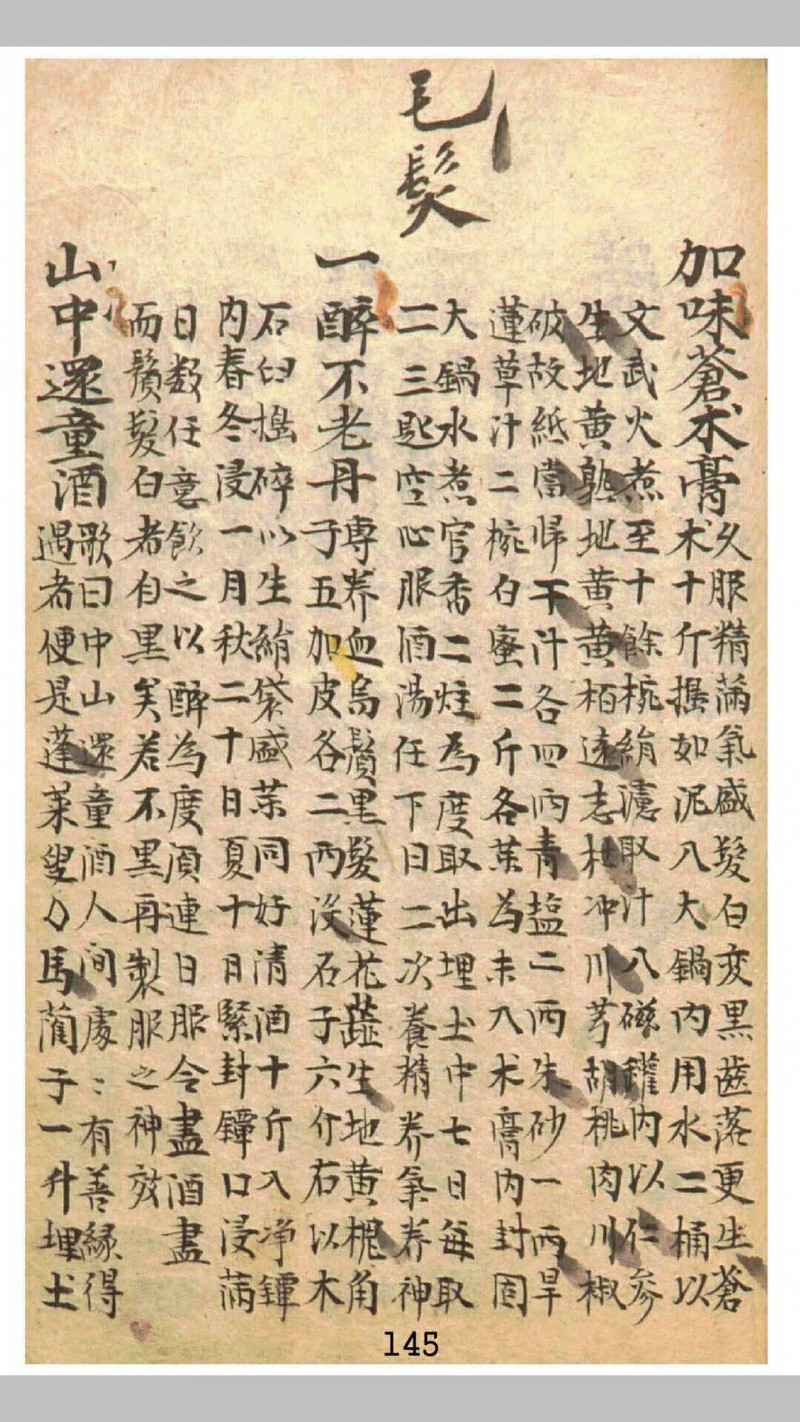 毛髮
加味蒼朮膏
久服精滿氣盛髮白変黒齒落更生蒼
朮十斤搗如泥入大鍋内用水二桶以
文武火煮至十餘椀絹濾取汁入磁罐内以仁参
生地黄熟地黄黄栢遠志杜冲川芎胡桃肉川椒
破故紙當帰干汁各四両青塩二両朱砂一両旱
蓮草汁二椀白蜜二斤各茱為末入朮膏内封固
大鍋水煮官香二炷為度取出埋土中七日毎取
二三匙空心服酒湯任下日二次養精养氣养神
一醉不老丹
専养血烏鬚黒髮蓮花蕋生地黄槐角
子五加皮各二両没石子六介右以木
石臼搗碎以生絹袋盛茱同好清酒十斤入净罈
内春冬浸一月秋二十日夏十日緊封罈口浸滿
日数任意飲之以醉為度須連日服令盡酒盡
而鬚髮白者自黒矣若不黒再製服之神效
山中還童酒
歌曰中山還童酒人间處〻有善縁得
遇者便是蓬萊叟○馬藺子一升埋土
145